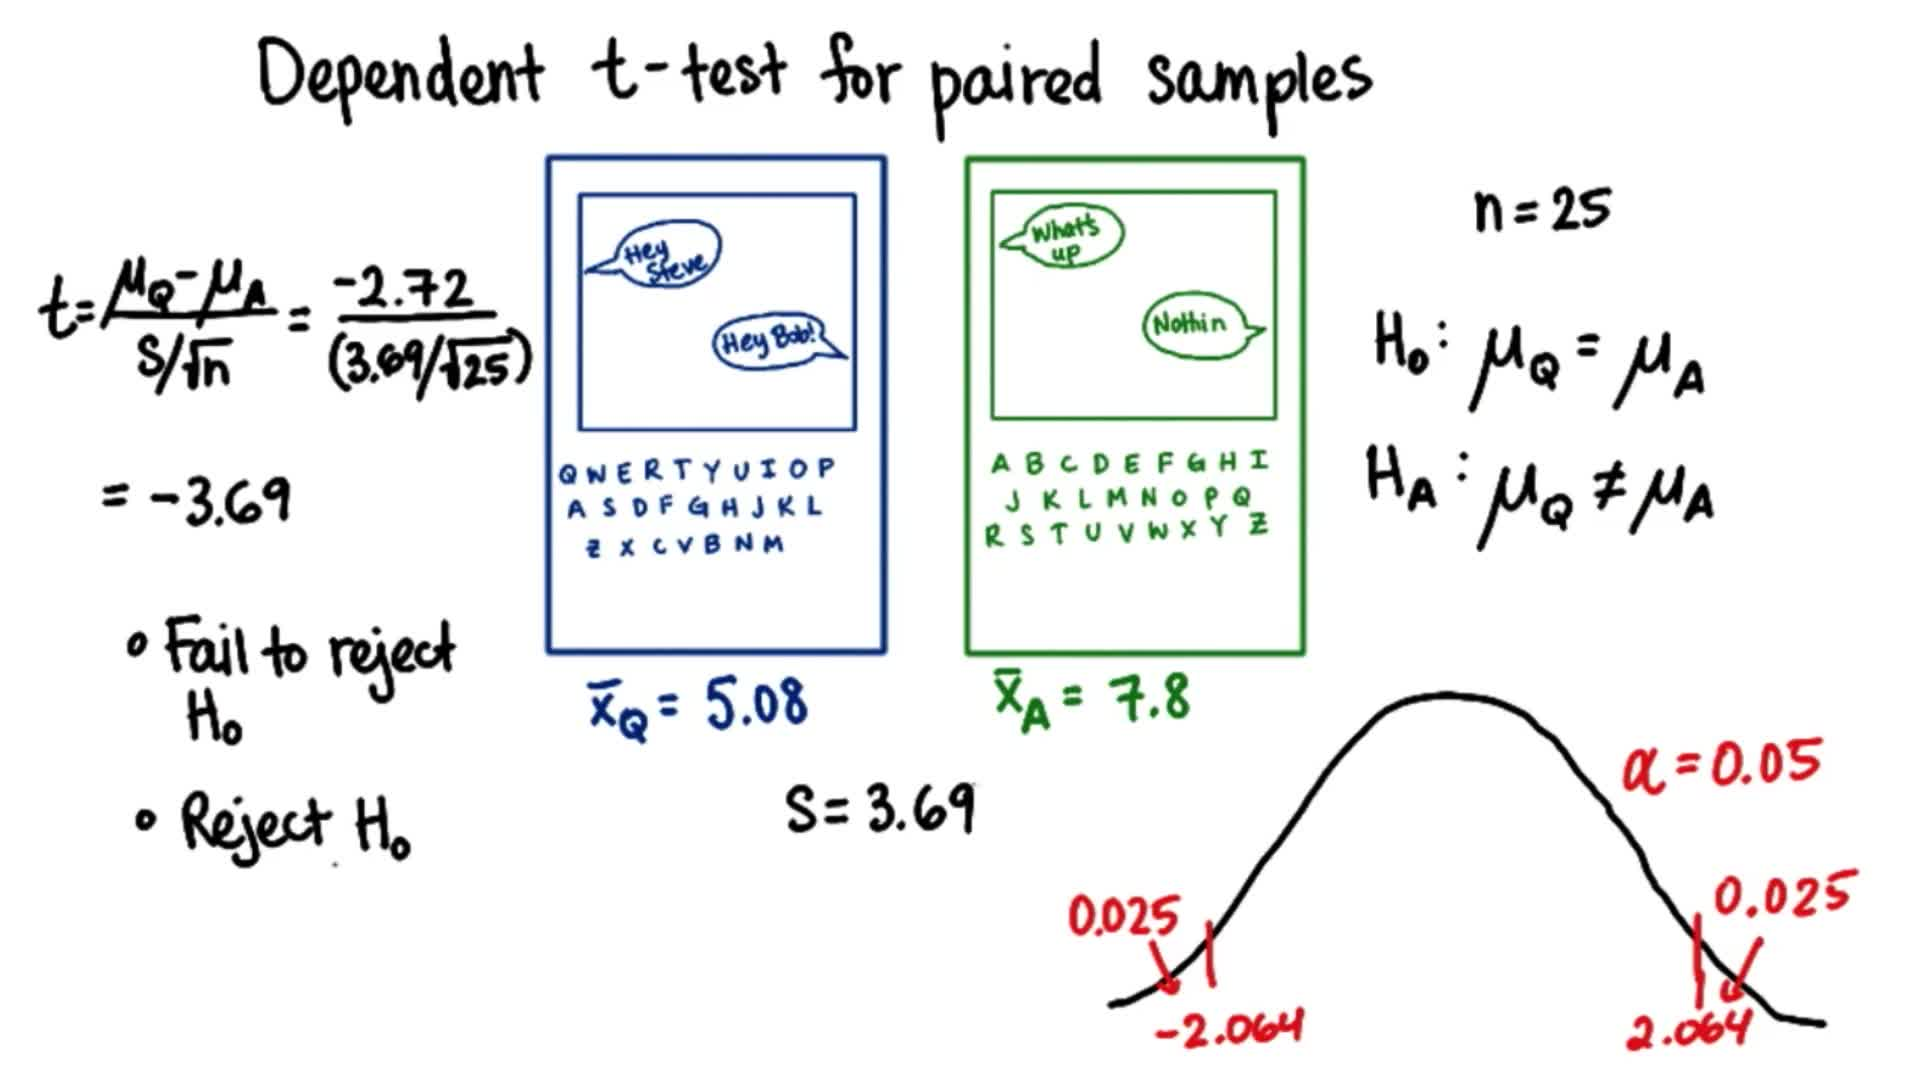 Dependent t-test for paired samples
t = μQ - μA / S/√n = -2.72 / (3.69/√25)
= -3.69
• Fail to reject
H₀
• Reject H₀
Hey
Steve
Hey Bob!
Q W E R T Y U I O P
A S D F G H J K L
Z X C V B N M
x̄Q = 5.08
What's
up
Nothin
A B C D E F G H I
J K L M N O P Q
R S T U V W X Y Z
x̄A = 7.8
S = 3.69
n = 25
H₀: μQ = μA
HA: μQ ≠ μA
α = 0.05
0.025
0.025
-2.064
2.064